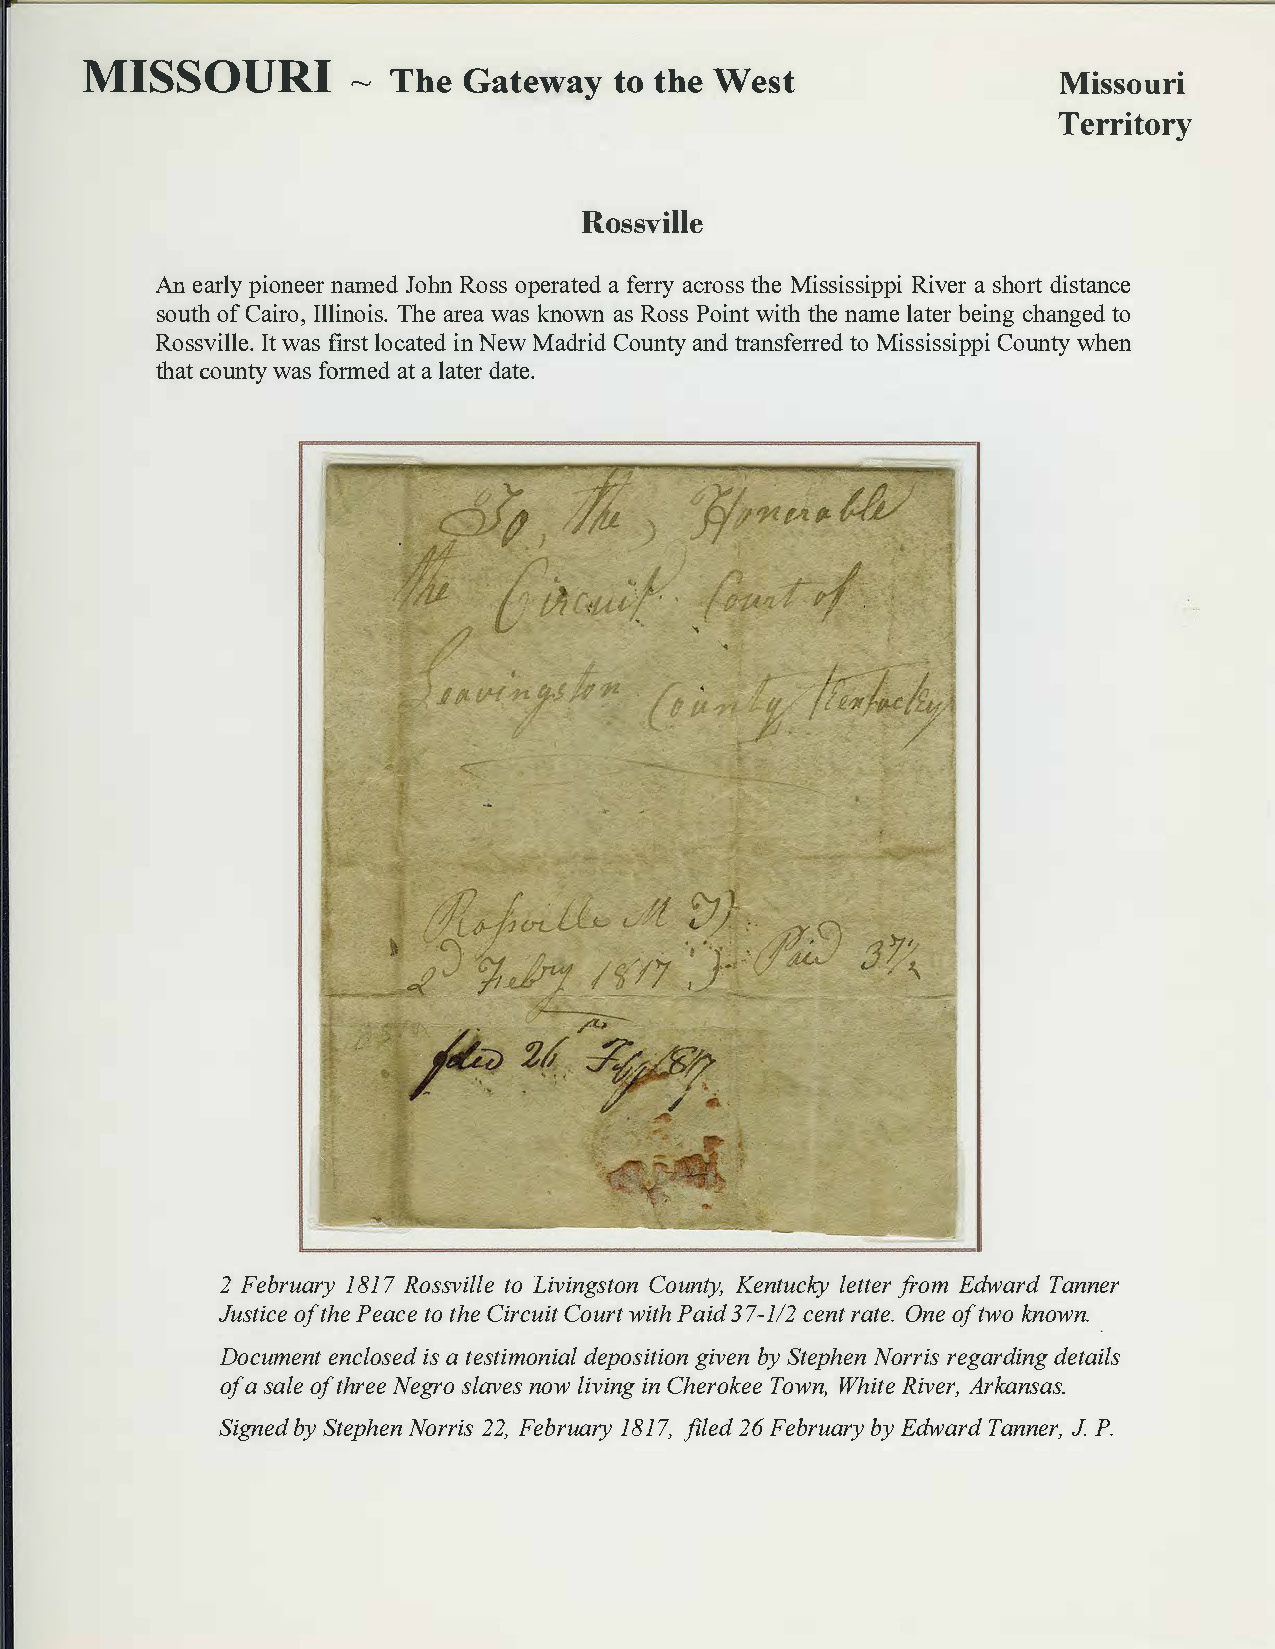 MISSOURI ~ The Gateway to the West
Missouri
Territory
Rossville
An early pioneer named John Ross operated a ferry across the Mississippi River a short distance
south of Cairo, Illinois. The area was known as Ross Point with the name later being changed to
Rossville. It was first located in New Madrid County and transferred to Mississippi County when
that county was formed at a later date.
To, the, Honerable
the Circuit Court of
Leavingston County Kentucky
Rossville M T
2d Febry 1817 } Paid 37½
filed 26 Feby 1817
2 February 1817 Rossville to Livingston County, Kentucky letter from Edward Tanner
Justice of the Peace to the Circuit Court with Paid 37-1/2 cent rate. One of two known.
Document enclosed is a testimonial deposition given by Stephen Norris regarding details
of a sale of three Negro slaves now living in Cherokee Town, White River, Arkansas.
Signed by Stephen Norris 22, February 1817, filed 26 February by Edward Tanner, J. P.